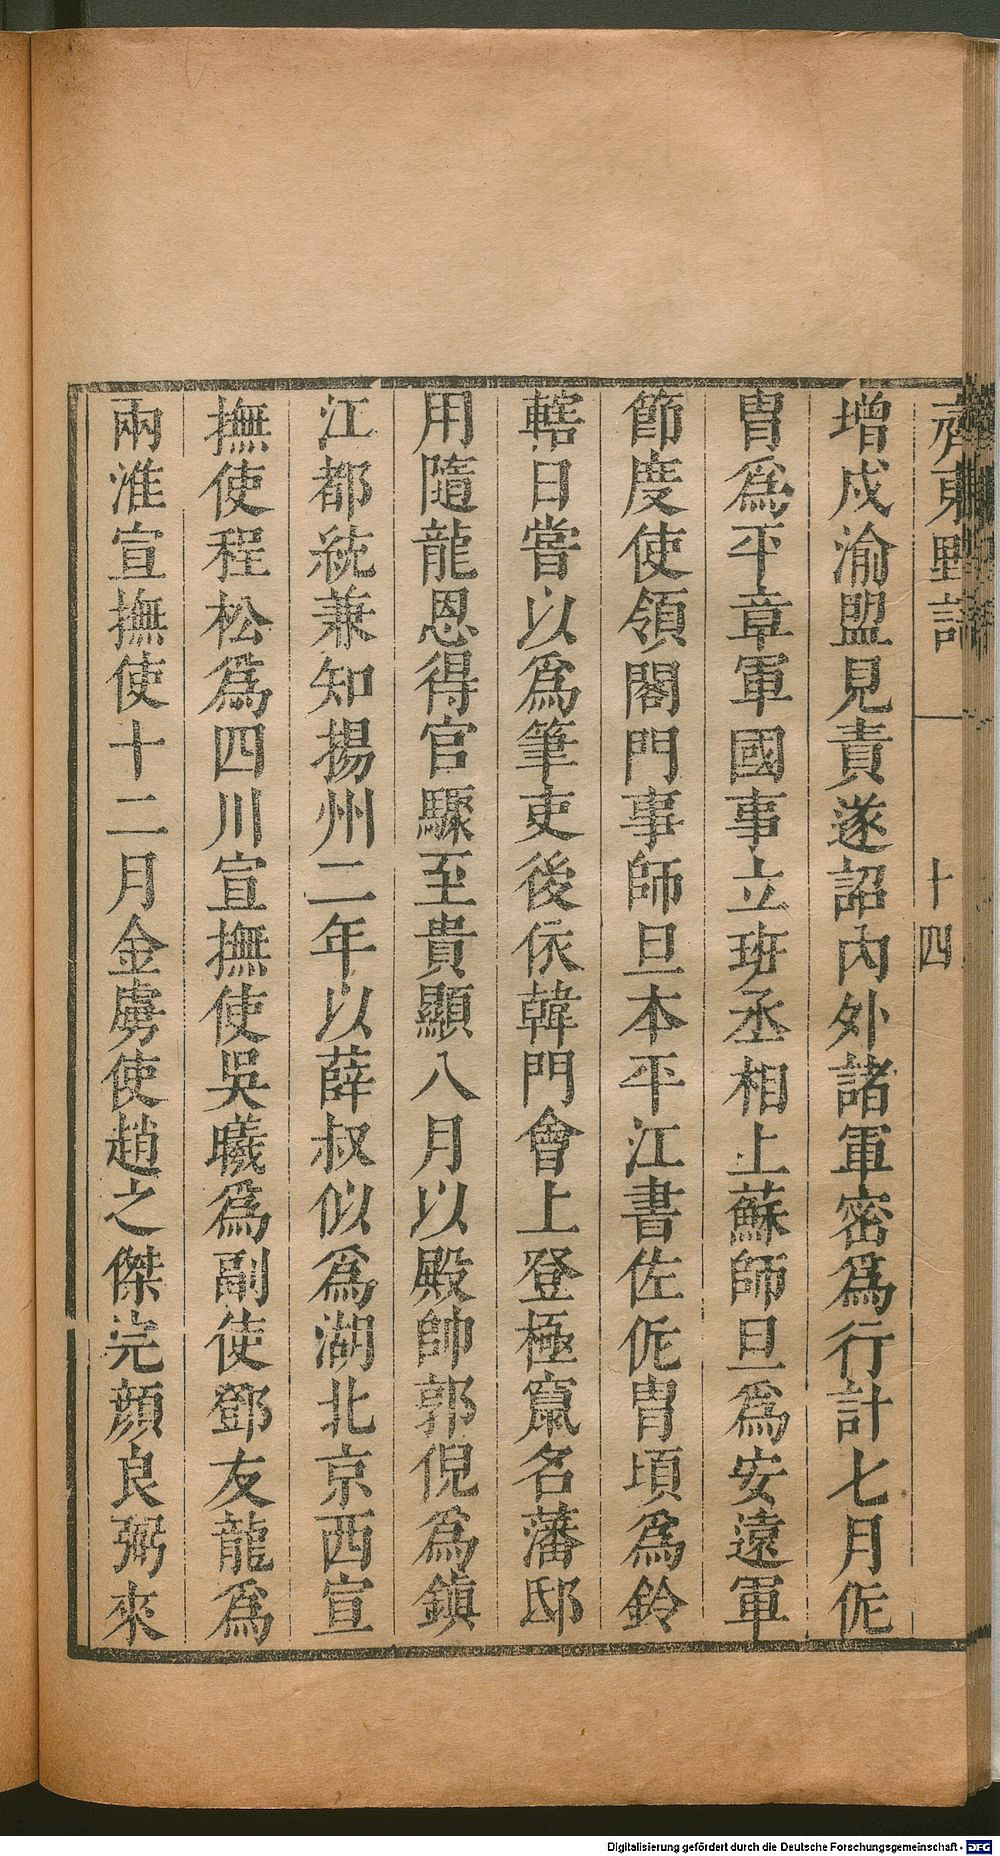 齊東野語
十四
增戍渝盟見責遂詔內外諸軍密為行計七月侂
胄為平章軍國事立班丞相上蘇師旦為安遠軍
節度使領閣門事師旦本平江書佐侂胄頃為鈴
轄日嘗以為筆吏後依韓門會上登極竄名藩邸
用隨龍恩得官驟至貴顯八月以殿帥郭倪為鎮
江都統兼知揚州二年以薛叔似為湖北京西宣
撫使程松為四川宣撫使吳曦為副使鄧友龍為
兩淮宣撫使十二月金虜使趙之傑完顏良弼來
Digitalisierung gefördert durch die Deutsche Forschungsgemeinschaft - DFG